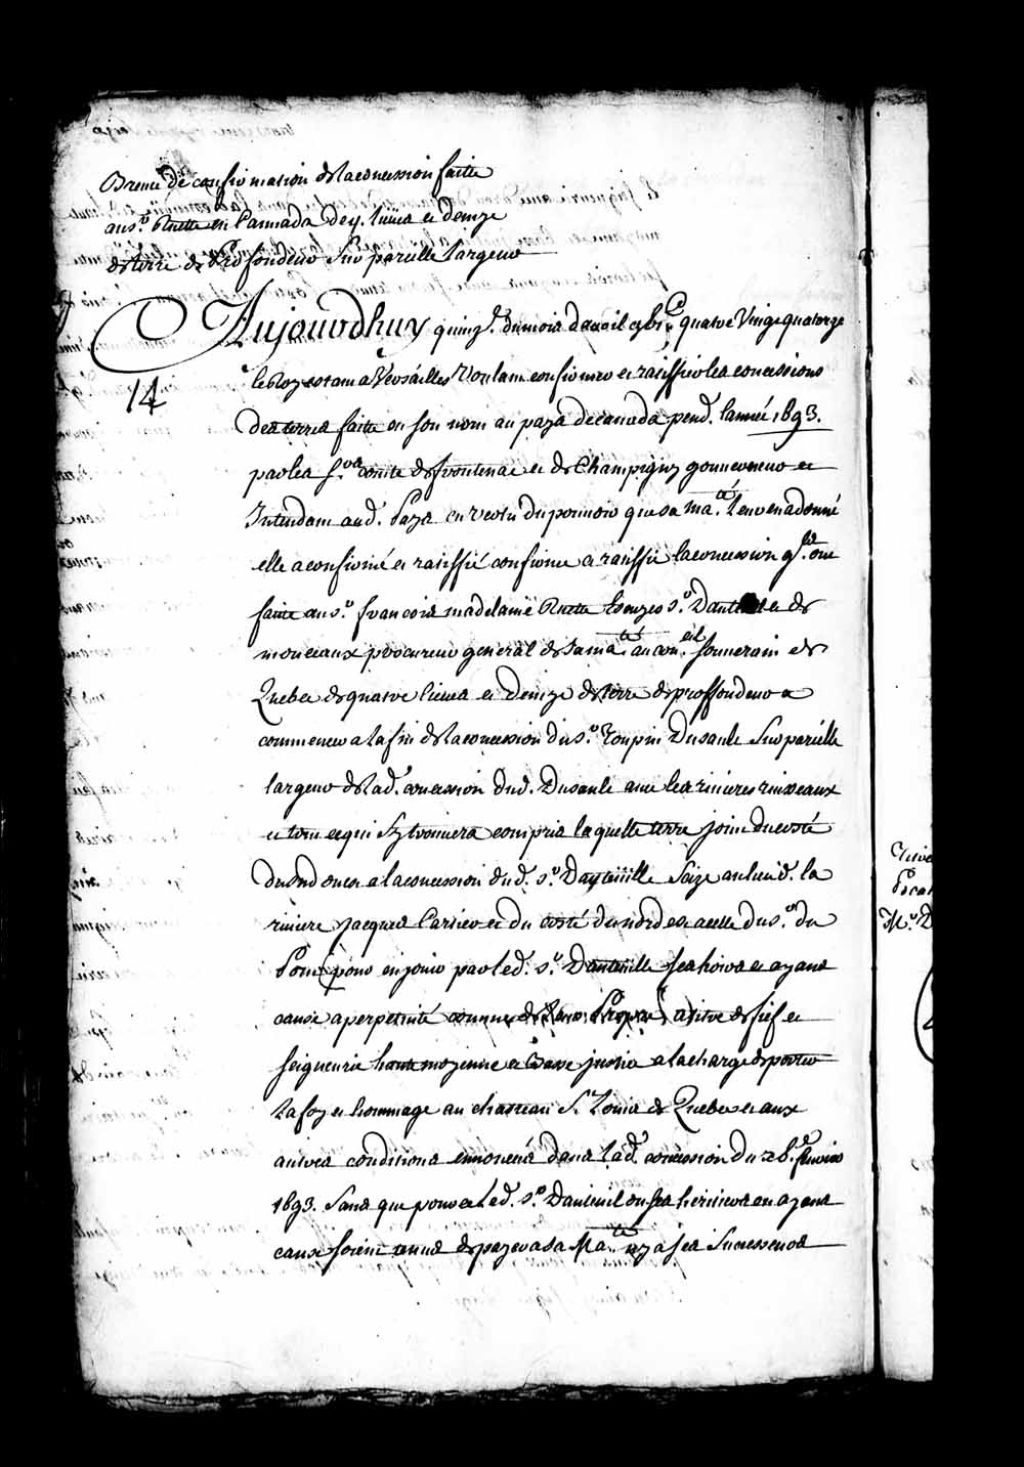 Brevet de confirmation de la concession faite
au s.r Ruette en Cannada de 4. lieües et demye
de terre de Profondeur sur pareille largeur
Aujourdhuy quinz.e du mois d'avril gbi.c quatre Vingt quatorze
14
le Roy estant a Versailles Voulant confirmer et ratiffier les concessions
des terres faites en son nom au pays de canada pend. l'année 1693.
par les s.rs comte de frontenac et de Champigny gouverneur et
Intendant aud. Pays en vertu du pouvoir que sa ma.té leur en a donné
elle a confirmé et ratiffié confirme et ratiffie la concession q.ls ont
faite au s.r francois madelaine Ruette Escuyer s.r Dauteuil et de
monceaux procureur general de sa ma.té au con.eil souverain de
Quebec de quatre lieues et demye de terre de proffondeur a
commencer a la fin de la concession du s.r Toupin Dusault sur pareille
largeur de lad. concession dud. Dusault avec les rivieres ruisseaux
et tout ce qui s'y trouvera compris laquelle terre joint du costé
du Sud ouest a la concession dud. s.r Dauteüille Size au lieu d. la
riviere Jacques Cartier et du costé du nord est a celle du s.r du
Pont pour en jouir par led. s.r Dauteuille ses hoirs et ayans
cause a perpetuité comme de leur Propre a titre de fief et
seigneurie haute moyenne et basse justice a la charge de porter
la foy et hommage au chasteau S.t Louis de Quebec et aux
autres conditions ennoncées dans lad. concession du 28.e fevrier
1693. Sans que pour ce led. s.r Dauteuil ou ses heritiers ou ayans
cause soient tenus de payer a sa Ma.té ny a ses Successeurs